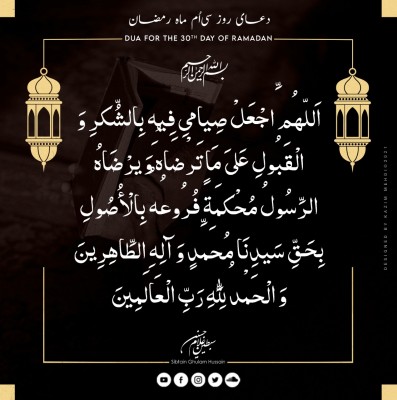 دعای روز سی‌اُم ماه رمضان
DUA FOR THE 30TH DAY OF RAMADAN
بسم الله الرحمن الرحیم
اَللّهُمَّ اجْعَلْ صِيامي فيهِ بِالشُّكرِ وَ
الْقَبُولِ عَلىٰ مَا تَرضاهُ وَ يَرْضَاهُ
الرَّسُولُ مُحْكَمَةً فُرُوعُهُ بِالْأُصُولِ
بِحَقِّ سَيِدِنَا مُحمدٍ وَ آلِهِ الطَّاهِرِينَ
وَ الْحَمْدُ لِلّٰهِ رَبِّ الْعَالَمِينَ
سبطین غلام حسین
Sibtain Ghulam Hussain
DESIGNED BY KAZIM MEHDI©2021